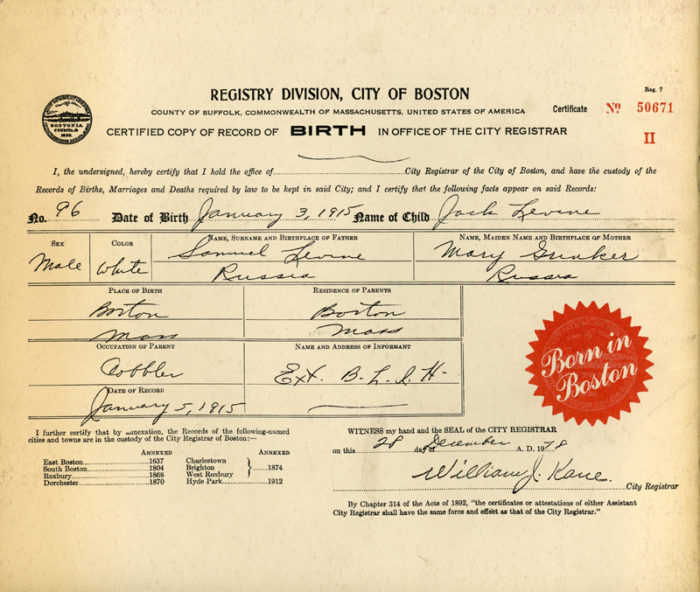 REGISTRY DIVISION, CITY OF BOSTON
Reg. 7
COUNTY OF SUFFOLK, COMMONWEALTH OF MASSACHUSETTS, UNITED STATES OF AMERICA
Certificate No 50671
CERTIFIED COPY OF RECORD OF BIRTH IN OFFICE OF THE CITY REGISTRAR
II
BOSTONIA
I, the undersigned, hereby certify that I hold the office of City Registrar of the City of Boston, and have the custody of the
Records of Births, Marriages and Deaths required by law to be kept in said City; and I certify that the following facts appear on said Records:
No. 96 Date of Birth January 3, 1915 Name of Child Jack Levine
SEX COLOR NAME, SURNAME AND BIRTHPLACE OF FATHER NAME, MAIDEN NAME AND BIRTHPLACE OF MOTHER
Male White Samuel Levine Mary Grinker
Russia Russia
PLACE OF BIRTH RESIDENCE OF PARENTS
Boston Boston
Mass Mass
OCCUPATION OF PARENT NAME AND ADDRESS OF INFORMANT
Cobbler Ext. B. L. I. H.
DATE OF RECORD
January 5, 1915
Born in
Boston
I further certify that by annexation, the Records of the following-named
cities and towns are in the custody of the City Registrar of Boston:—
ANNEXED ANNEXED
East Boston 1637 Charlestown
South Boston 1804 Brighton 1874
Roxbury 1868 West Roxbury
Dorchester 1870 Hyde Park 1912
WITNESS my hand and the SEAL of the CITY REGISTRAR
on this 28 day of December A. D. 1978
William J. Kane
City Registrar
By Chapter 314 of the Acts of 1892, "the certificates or attestations of either Assistant
City Registrar shall have the same force and effect as that of the City Registrar."